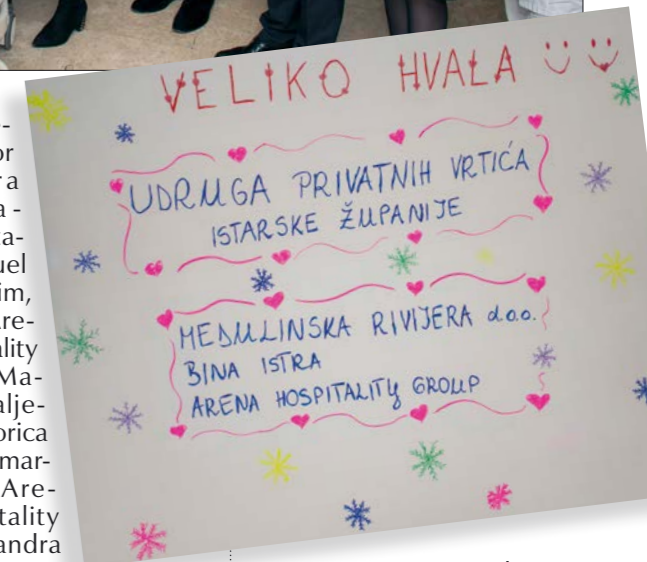 -
or
ra
a-
ta-
uel
im,
Are-
ality
Ma-
alje-
orica
mar-
Are-
tality
andra
VELIKO HVALA
UDRUGA PRIVATNIH VRTIĆA
ISTARSKE ŽUPANIJE
MEDULINSKA RIVIJERA d.o.o.
BINA ISTRA
ARENA HOSPITALITY GROUP